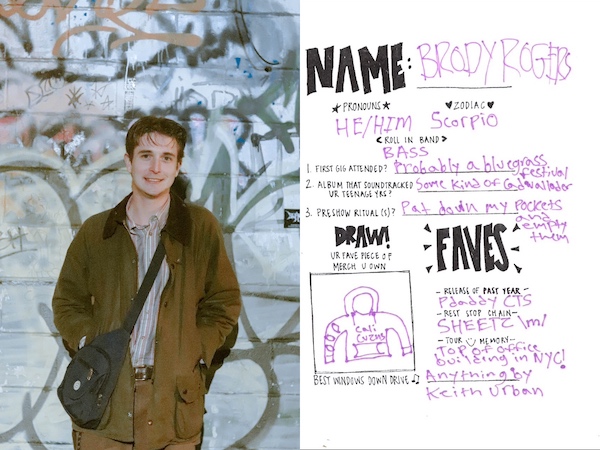 NAME: BRODY ROGERS
★PRONOUNS★ ♥ZODIAC♥
HE/HIM Scorpio
<ROLL IN BAND>
BASS
1. FIRST GIG ATTENDED? Probably a bluegrass festival
2. ALBUM THAT SOUNDTRACKED UR TEENAGE YRS? Some kind of Cadwallader
3. PRESHOW RITUAL(S)? Pat down my pockets and empty them
DRAW!
UR FAVE PIECE OF
MERCH U OWN
Cali
FAVES
- RELEASE OF PAST YEAR -
Pdaddy CTS
- REST STOP CHAIN -
SHEETZ \m/
- TOUR MEMORY -
Top of office
building in NYC!
BEST WINDOWS DOWN DRIVE ♫ Anything by
Keith Urban